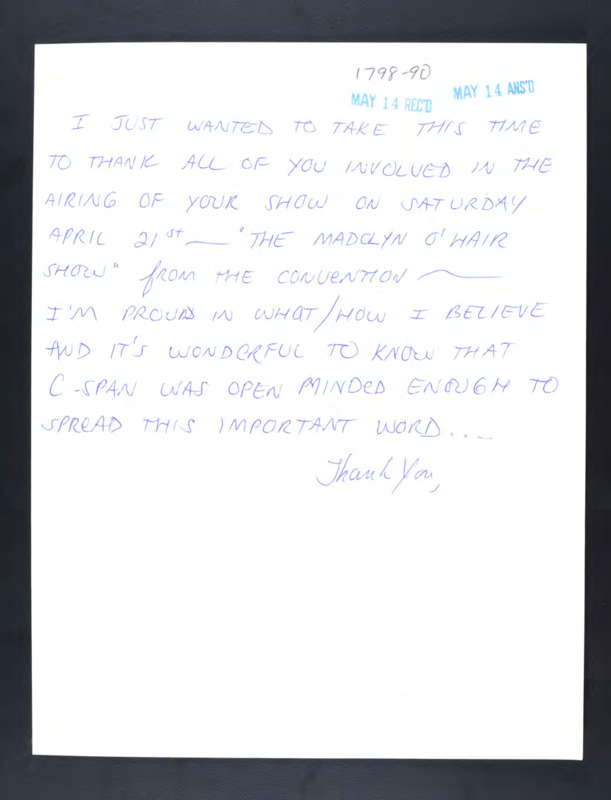 1798-90
MAY 14 REC'D
MAY 14 ANS'D
I JUST WANTED TO TAKE THIS TIME
TO THANK ALL OF YOU INVOLVED IN THE
AIRING OF YOUR SHOW ON SATURDAY
APRIL 21st — "THE MADOLYN O'HAIR
SHOW" from THE CONVENTION —
I'M PROUD IN WHAT/HOW I BELIEVE
AND IT'S WONDERFUL TO KNOW THAT
C-SPAN WAS OPEN MINDED ENOUGH TO
SPREAD THIS IMPORTANT WORD....
Thank You,